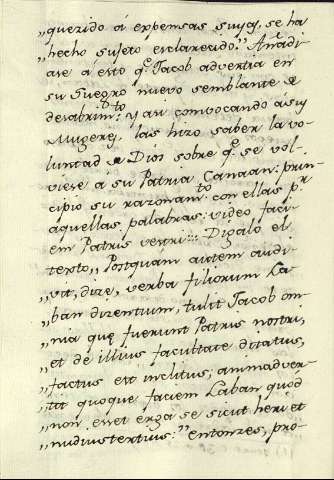 „querido á expensas suyas, se ha
„hecho sujeto esclarecido." Añadi
ase á esto q.^e Jacob advertia en
su Suegro nuevo semblante de
desabrim.^to: y asi convocando á sus
Mugeres, las hizo saber la vo-
luntad de Dios sobre q.^e se vol-
viese á su Patria Canaan: prin-
cipio su razonam.^to con ellas p.^r
aquellas palabras: video faci-
em Patris vestri::: Digalo el
texto „Postquam autem audi-
„vit, dize, verba filiorum La-
„ban dizentium, tulit Jacob om-
„nia quę fuerunt Patris nostri,
„et de illius facultate ditatus,
„factus est inclitus; ammadver-
„tit quoque faciem Laban quòd
„non esset erga se sicut heri et
„nudiustertius:" entonzes, pro-